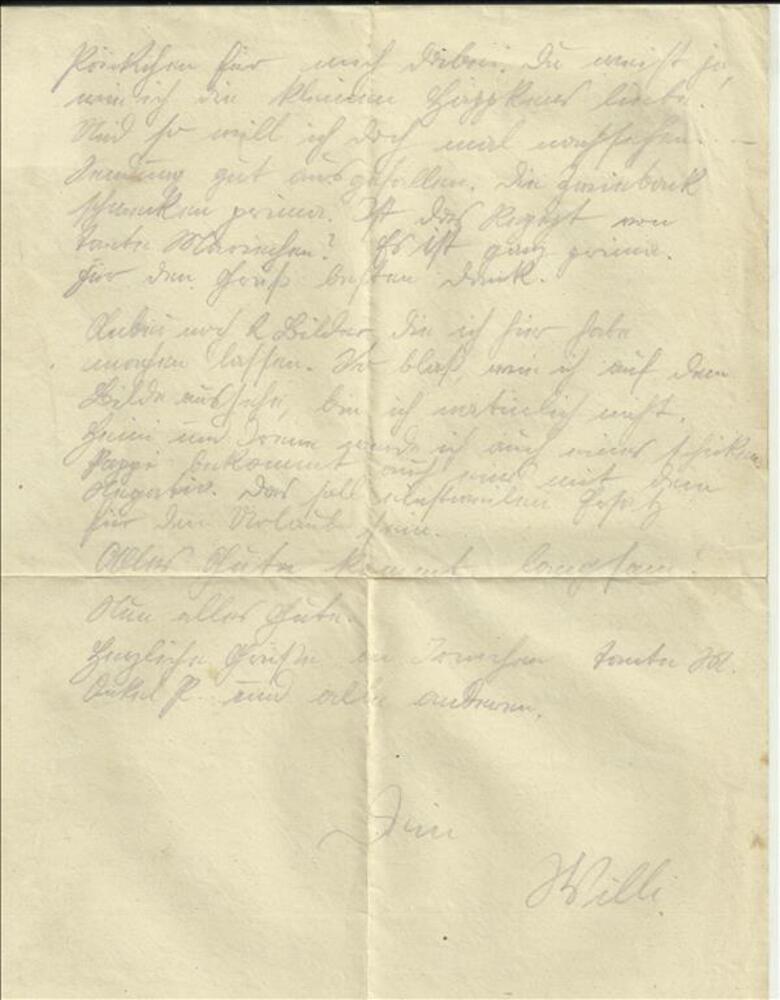 für mich dabei. Du weißt ja,
wie ich die kleinen Häppkens liebe.
Und so will ich doch mal nachsehen. –
Sendung gut ausgefallen. Die Zwieback
schmecken prima. Ist das Rezept von
Tante Mariechen? Es ist ganz prima.
Für den Gruß besten Dank.
Anbei noch 2 Bilder, die ich hier habe
machen lassen. So blaß, wie ich auf dem
Bilde aussehe, bin ich natürlich nicht.
Heini und werde ich auch eines schicken
Pappi bekommt auch eins mit dem
Negativ. Das soll einstweilen Ersatz
für den Urlaub sein.
Alles Gute kommt langsam!
Nun alles Gute.
Herzliche Grüße an Tante M.
Onkel P. und alle anderen.
Dein
Willi